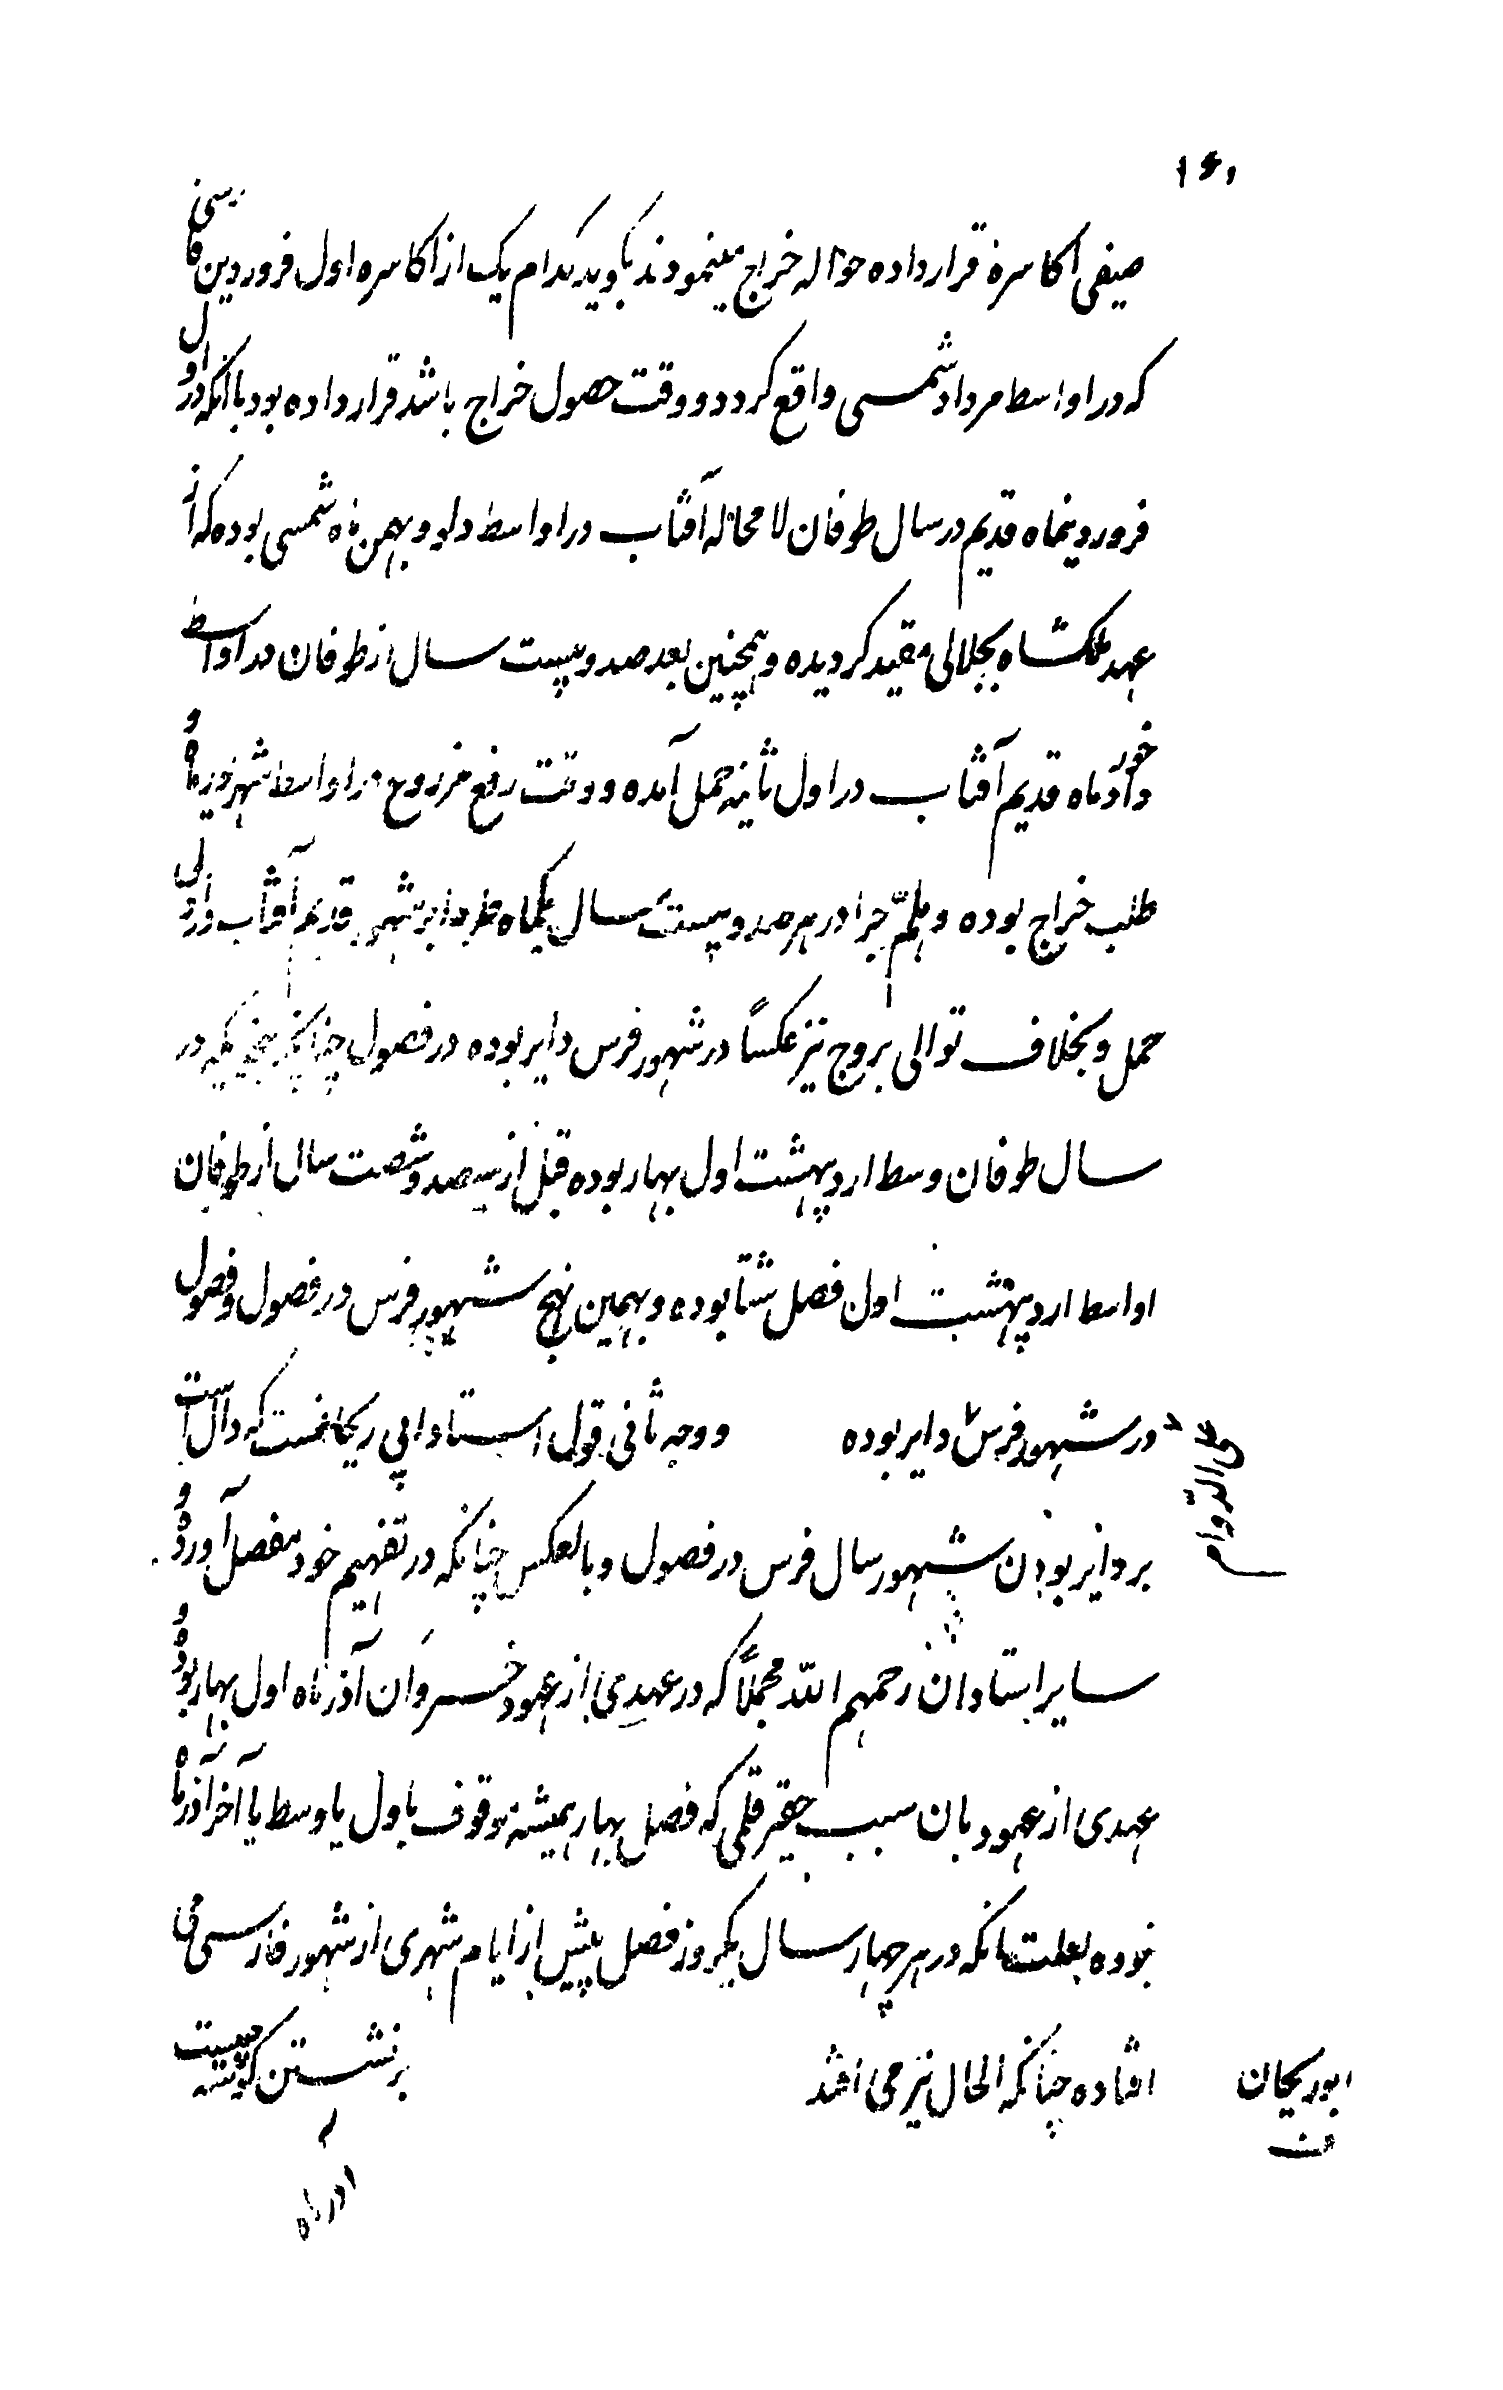 ۱۶۱
صیفی اکاسره قرار داده حواله خراج مینمودند بگوید کدام یک از اکاسره اول فروردین فارسی
که در اواسط مرداد شمسی واقع گردد و وقت حصول خراج باشد قرار داده بود با آنکه در اول
فروردینماه قدیم در سال طوفان لا محاله آفتاب در اواسط دلو و بهمن ماه شمسی بوده که از
عهد ملکشاه بجلالی مقید گردیده و همچنین بعد صد و بیست سال از طوفان در اواسط
خورداد ماه قدیم آفتاب در اول ثانیه حمل آمده و وقت رفع مزروع در اواسط شهریور ماه و
طلب خراج بوده و هلمّ جرا در هر صد و بیست سال یکماه قدیم آفتاب در اول
حمل و بخلاف توالی بروج نیز عکساً در شهور فرس دایر بوده در فصول چنانکه در
سال طوفان وسط اردیبهشت اول بهار بوده قبل از سیصد و شصت سال از طوفان
اواسط اردیبهشت اول فصل شتا بوده و بهمین نهج شهور فرس در فصول و فصول
در شهور فرس دایر بوده و وجه ثانی قول استاد ابی ریحانست که دال است
علی الدّوام
بر دایر بودن شهور سال فرس در فصول و بالعکس چنانکه در تفهیم خود مفصل آورده و
سایر استادان رحمهم الله مجملاً که در عهدی از عهود خسروان آذر ماه اول بهار بوده و
عهدی از عهود بان سبب حقیر قلمی که فصل بهار همیشه موقوف باول یا وسط یا آخر آذر ماه
نبوده بعلت آنکه در هر چهار سال یکروز فصل پیش از ایام شهری از شهور فارسی می
افتاده چنانکه الحال نیز می افتد برنشستن کوسه چیست
ابوریحان
آذر ماه